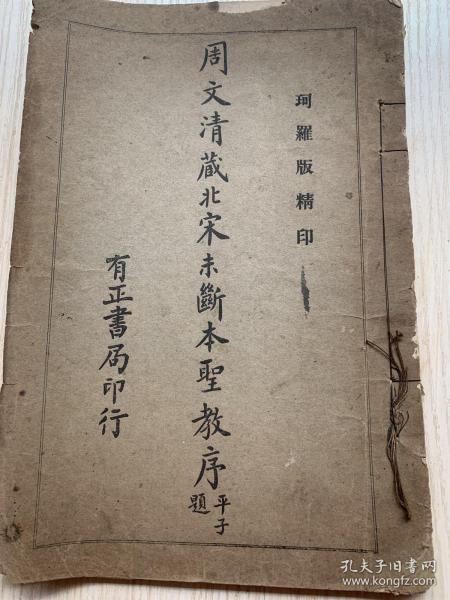 珂羅版精印
周文清藏北宋未斷本聖教序
平子題
有正書局印行
孔夫子旧书网
www.kongfz.com